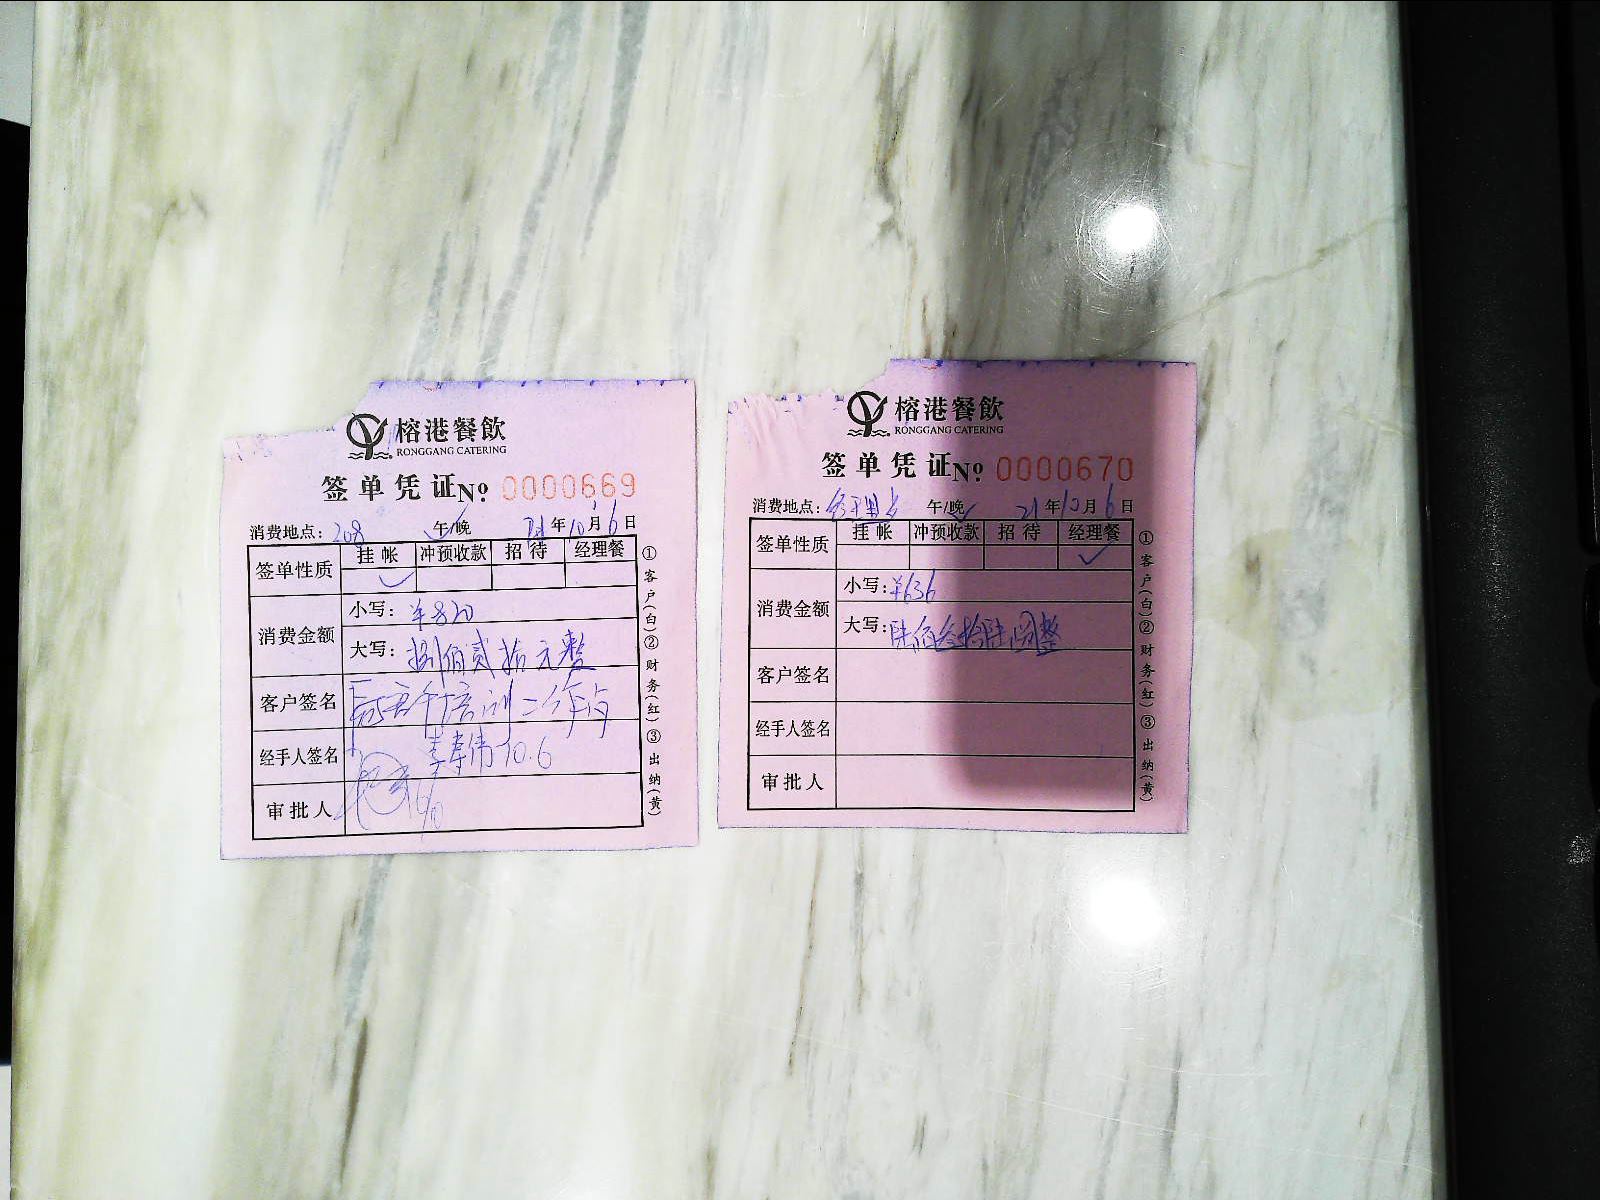 榕港餐飲
RONGGANG CATERING
签单凭证No 0000669
消费地点：208 午/晚 21年10月6日
签单性质 挂帐 冲预收款 招待 经理餐
消费金额 小写：¥820
大写：捌佰贰拾元整
客户签名
经手人签名 10.6
审批人 6/10
①客户(白)②财务(红)③出纳(黄)
榕港餐飲
RONGGANG CATERING
签单凭证No 0000670
消费地点：经理 午/晚 21年10月6日
签单性质 挂帐 冲预收款 招待 经理餐
消费金额 小写：¥636
大写：陆佰叁拾陆圆整
客户签名
经手人签名
审批人
①客户(白)②财务(红)③出纳(黄)